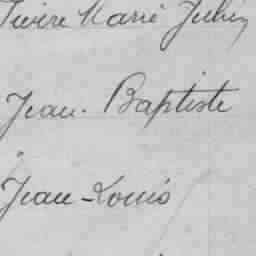 Pierre Marie Julien
Jean-Baptiste
Jean-Louis